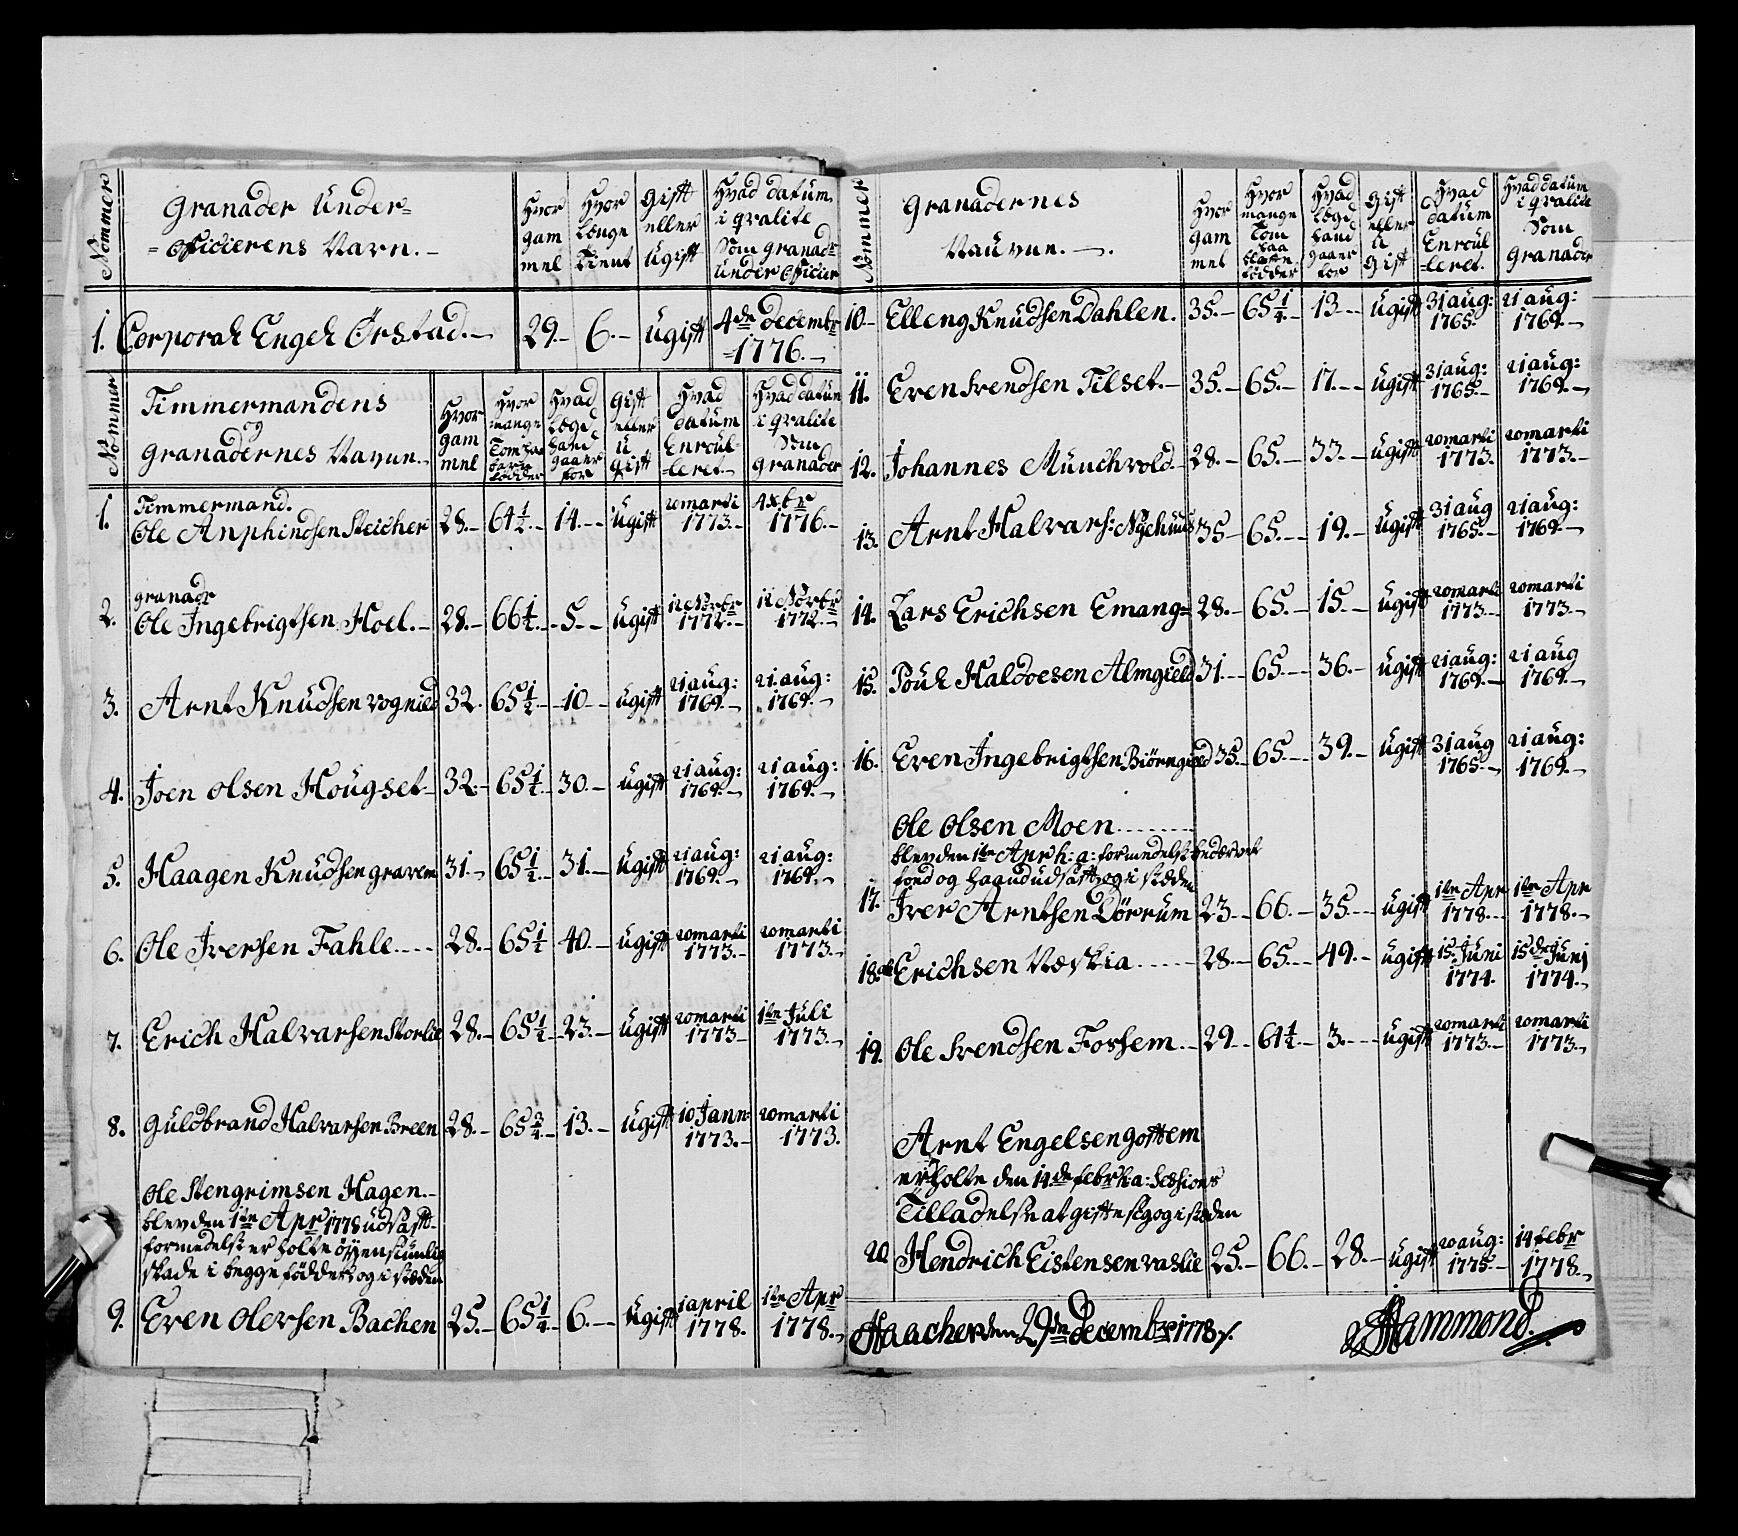 Nommer
Granader Under=
=officierens Navn.
Hvor
gam
mel
Hvor
længe
tient
gift
eller
ugift
Hvad datum
i qvalite
Som granadr
under officier
1. Corporal Engel Ørstad. 29. 6. ugift 4de decembr
1776.
Nommer
Timmermandens
og
granadernes Navne.
Hvor
gam
mel
Hvor
mange
Tom paa
bare
fødder
Hvad
Læge
hand
gaaer
for
gift
eller
u
gift
Hvad
datum
Enroul-
leret
Hvad datum
i qvalite
Som
granader
Timmermand.
1. Ole Anphindsen Steicher 28. 64½. 14. ugift 20 marti 1773. 4 Xbr 1776.
granadr
2. Ole Ingebrigtsen Hoel. 28. 66¼. 5. ugift 12 Novbr 1772. 12 Novbr 1772.
3. Arnt Knudsen vognild 32. 65½. 10 ugift 21 aug: 1769. 21 aug: 1769.
4. Joen olsen Hougset 32. 65¼. 30. ugift 21 aug: 1769. 21 aug: 1769.
5. Haagen Knudsen gravem 31. 65½. 31. ugift 21 aug: 1769. 21 aug: 1769.
6. Ole Iversen Fahle 28. 65½ 40. ugift 20 marti 1773. 20 marti 1773.
7. Erich Halvarsen Storlie 28. 65½ 23. ugift 20 marti 1773 1te Juli 1773.
8. Guldbrand Halvarsen Breen 28. 65¾. 13. ugift 10 Jann: 1773. 20 marti 1773.
Ole Stengrimsen Hagen
blev den 1te Apr 1778 udsatt
formedelst erholte øyensiunlig
skade i begge fødder og i stæden
9. Even olersen Bachen 25. 65¼. 6. ugift 1 april 1778. 1te Apr 1778.
Nommer
Granadernes
Navne.
Hvor
gam
mel
Hvor
mange
Tom
paa
blotte
fødder
Hvad
Læge
hand
gaaer
for
gift
eller
u
gift
Hvad
datum
Enroul
=leret.
Hvad datum
i qvalite
Som
granader
10 Elleng Knudsen Dahlen. 35. 65¼. 13. ugift 31 aug: 1765. 21 aug: 1769.
11. Even Svendsen Tilset. 35. 65. 17. ugift 31 aug: 1765. 21 aug: 1769.
12. Johannes Munchvold. 28. 65. 33. ugift 20 marti 1773. 20 marti 1773.
13. Arnt Halvars: Nyehuus 35 65. 19. ugift 31 aug 1765. 21 aug: 1769.
14. Lars Erichsen Emang= 28. 65. 15. ugift 20 marti 1773. 20 marti 1773.
15. Poul Haldoesen Almgield 31. 65. 36. ugift 21 aug: 1769. 21 aug 1769.
16. Even Ingebrigtsen Biørngield 35. 65. 39. ugift 31 aug 1765. 21 aug: 1769.
Ole Olsen Moen
blev den 1te Apr h: a: formedelst bedærvet
fond og haand udsatt og i stæden
17. Iver Arntsen Dörrum 23. 66. 35. ugift 1te Apr 1778. 1te Apr 1778.
18. ole Erichsen Næskia 28. 65. 49. ugift 15. Juni 1774. 15de Junj 1774.
19. Ole Svendsen Forsem 29 64¼. 3. ugift 20 marti 1773. 20 marti 1773.
Arnt Engelsen gottem
erholte den 14de febr h: a: Sessions
Tilladelse at gifte sig og i stæden
20. Hendrich Eistensen vaslie 25. 66. 28. ugift 20 aug: 1775. 14 febr 1778.
Haacher den 29de decembr 1778 /.
Hammond.